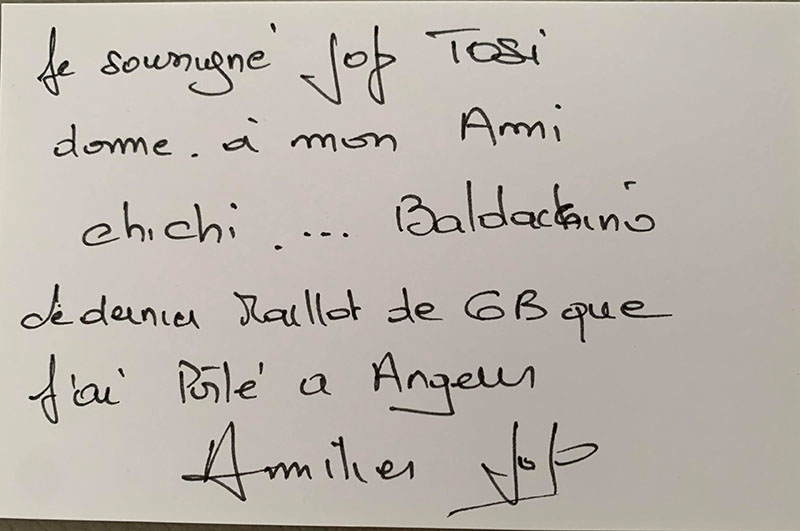 Je soussigné Jop Tosi
donne. à mon Ami
chichi .... Baldacchino
le dernier Maillot de GB que
J'ai Porté a Angers
Amitiés Jop